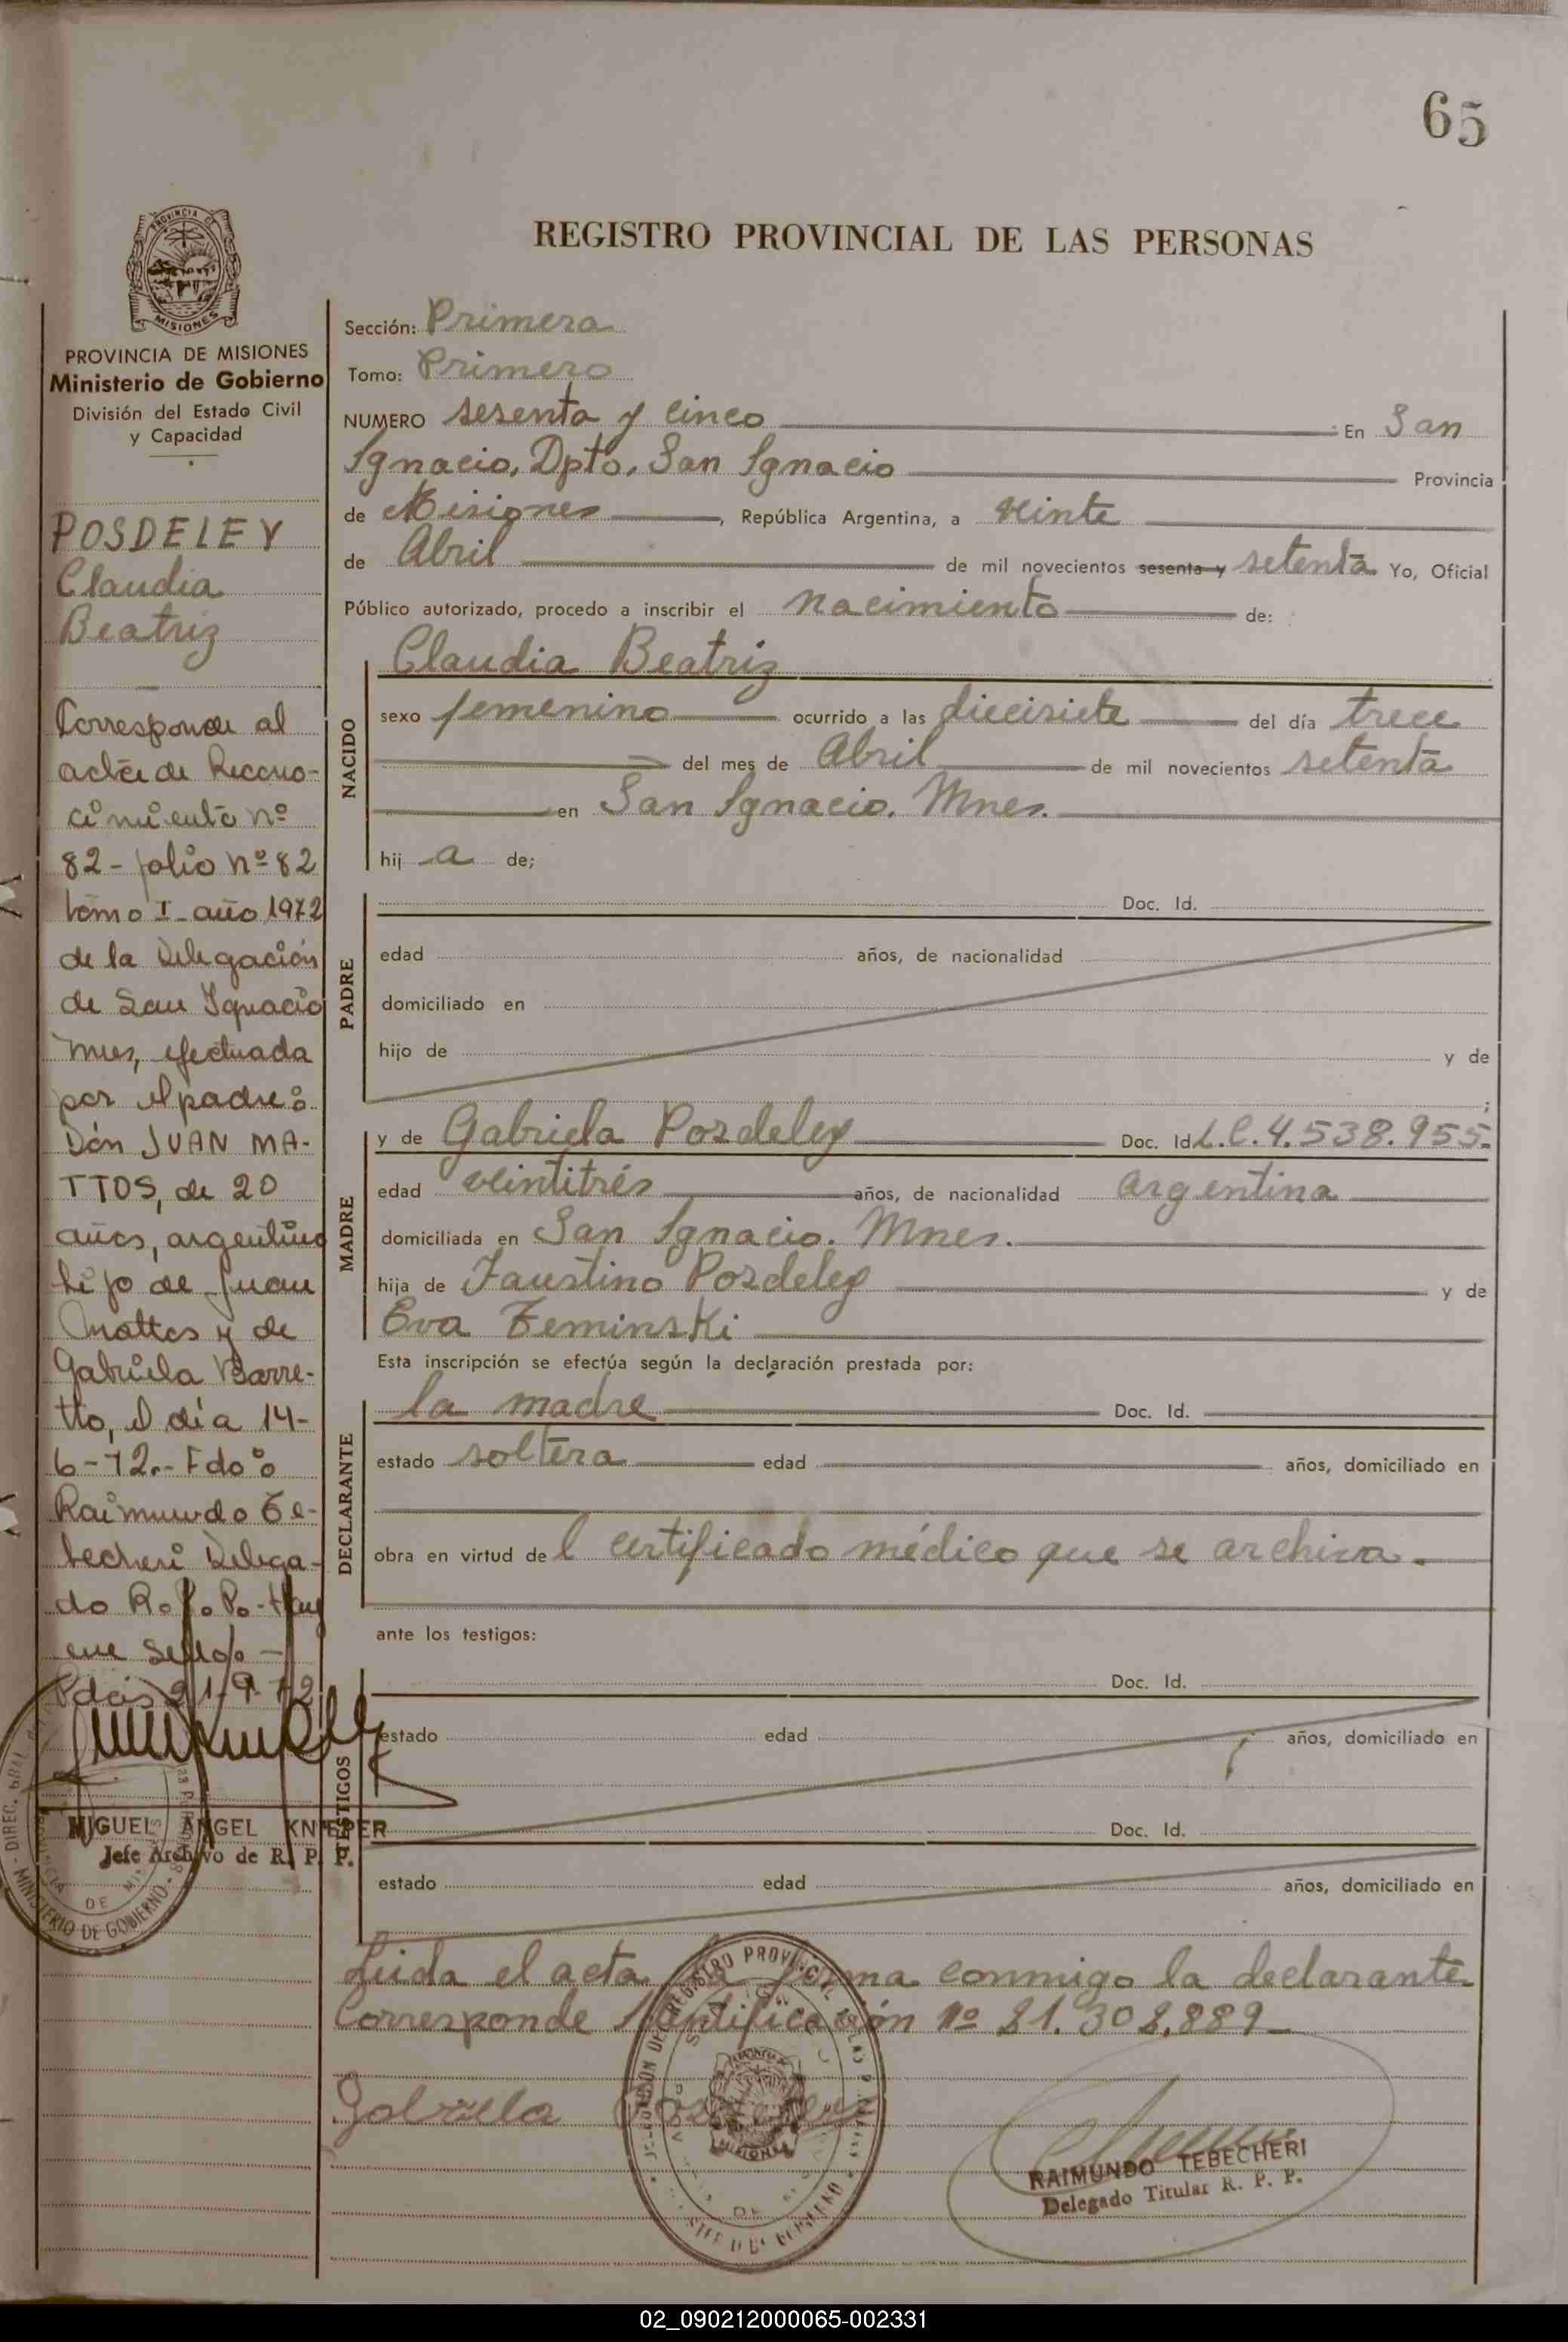 65
REGISTRO PROVINCIAL DE LAS PERSONAS
PROVINCIA DE
MISIONES
PROVINCIA DE MISIONES
Ministerio de Gobierno
División del Estado Civil
y Capacidad
POSDELEY
Claudia
Beatriz
Corresponde al
acta de Recono-
cimiento nº
82 - folio nº 82
tomo I - año 1972
de la Delegación
de San Ignacio
Mnes, efectuada
por el padre:
Dón JUAN MA-
TTOS, de 20
años, argentino
hijo de Juan
Mattos y de
Gabriela Barre-
tto, el día 14-
6-72.- Fdo:
Raimundo Te-
becheri Delega-
do R. P. P. - Hay
un sello -
Pdas 21-9-72
MIGUEL ANGEL KNIEPER
Jefe Archivo de R. P. P.
MINISTERIO DE GOBIERNO
Sección: Primera
Tomo: Primero
NUMERO sesenta y cinco En San
Ignacio, Dpto. San Ignacio Provincia
de Misiones, República Argentina, a veinte
de Abril de mil novecientos sesenta y setenta Yo, Oficial
Público autorizado, procedo a inscribir el nacimiento de:
NACIDO
Claudia Beatriz
sexo femenino ocurrido a las diecisiete del día trece
del mes de Abril de mil novecientos setenta
en San Ignacio. Mnes.
hij a de;
PADRE
Doc. Id.
edad años, de nacionalidad
domiciliado en
hijo de y de
;
MADRE
y de Gabriela Posdeley Doc. Id. L.C. 4.538.955-
edad veintitrés años, de nacionalidad argentina
domiciliada en San Ignacio. Mnes.
hija de Faustino Posdeley y de
Eva Zeminski
Esta inscripción se efectúa según la declaración prestada por:
DECLARANTE
la madre Doc. Id.
estado soltera edad años, domiciliado en
obra en virtud de l certificado médico que se archiva.
ante los testigos:
TESTIGOS
Doc. Id.
estado edad años, domiciliado en
Doc. Id.
estado edad años, domiciliado en
Leida el acta la firma conmigo la declarante
Corresponde Identificación nº 21.302.889-
Gabriela Posdeley
RAIMUNDO TEBECHERI
Delegado Titular R. P. P.
02_090212000065-002331